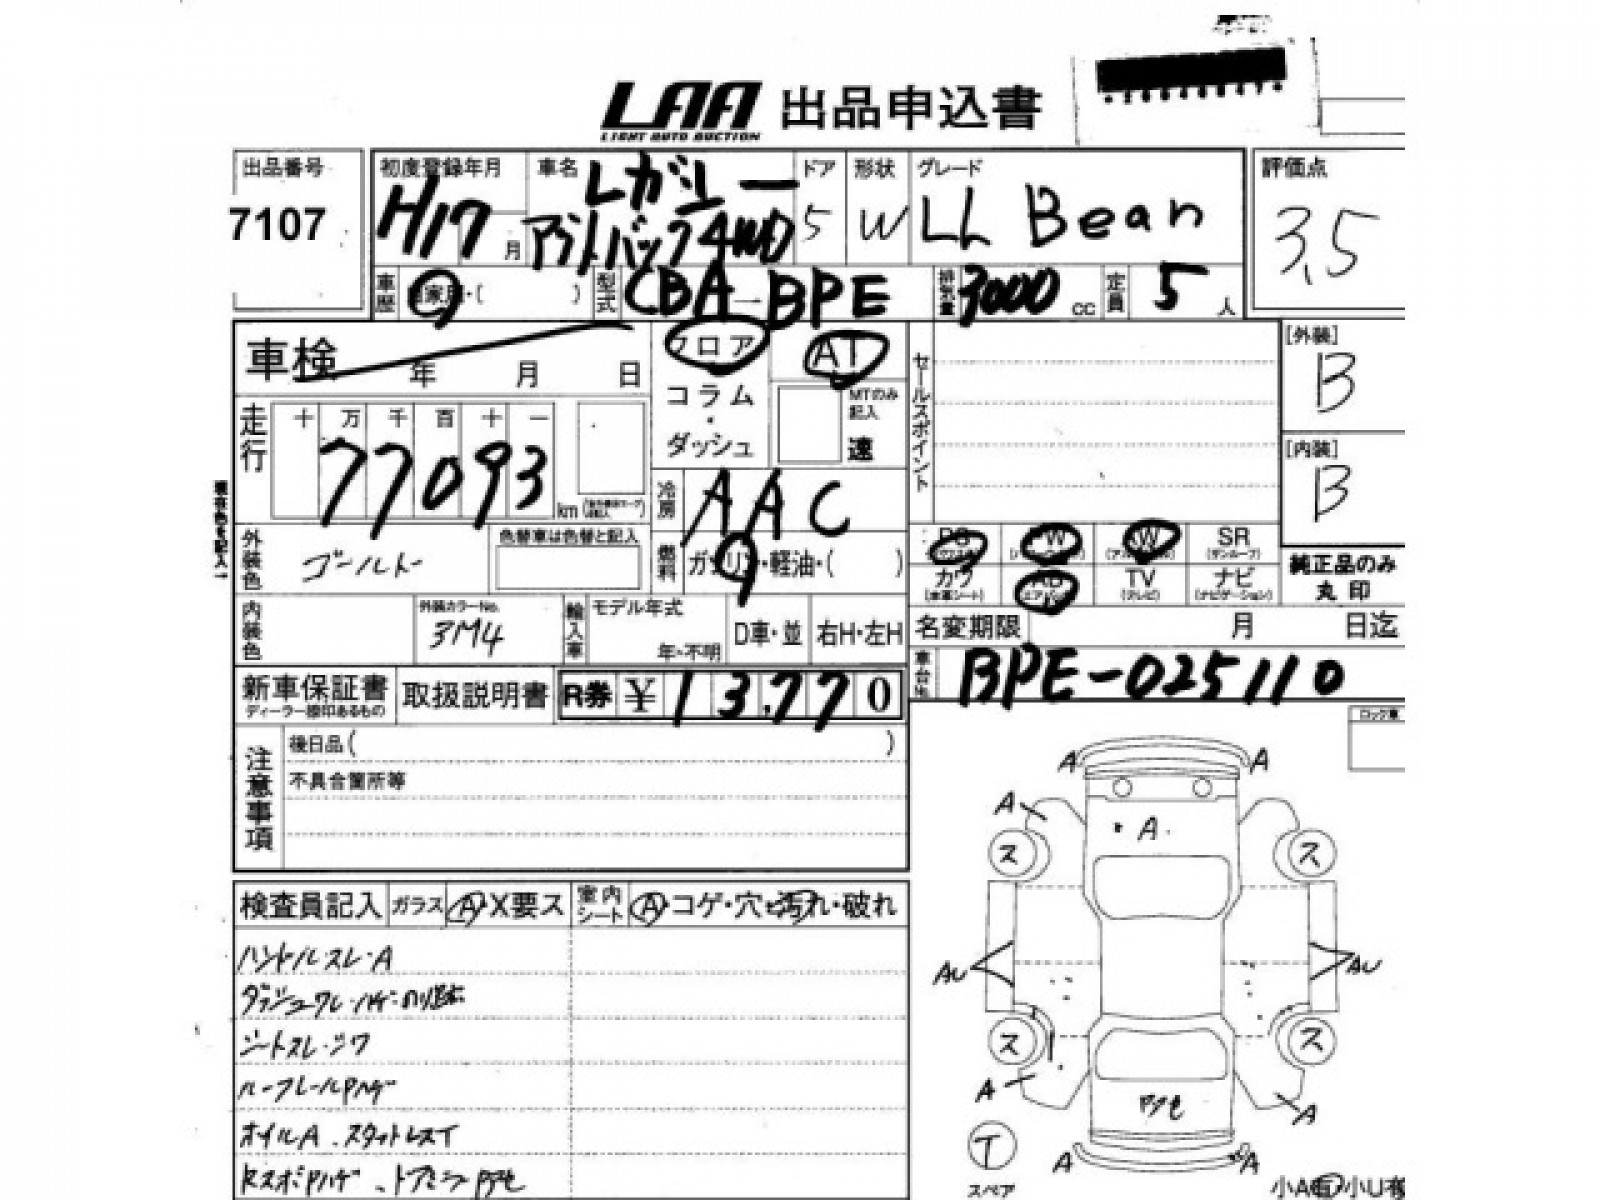 LAA 出品申込書
LIGHT AUTO AUCTION
出品番号
7107
初度登録年月
H17 月
車名
レガシー
アウトバック4WD
ドア
5
形状
W
グレード
LL Bean
評価点
3.5
車歴
自家用・( )
型式
CBA-BPE
排気量
3000 cc
定員
5 人
車検 年 月 日
フロア
コラム
・
ダッシュ
AT
MTのみ
記入
速
セールスポイント
[外装]
B
[内装]
B
走行
十 万 千 百 十 一
77093
km
現在色を記入→
冷房
AAC
燃料
ガソリン・軽油・( )
外装色
ゴールド
色替車は色替と記入
PS
PW
AW
SR
(サンルーフ)
カワ
(本革シート)
AB
(エアバッグ)
TV
(テレビ)
ナビ
(ナビゲーション)
純正品のみ
丸印
内装色
外装カラーNo.
3M4
輸入車
モデル年式
年・不明
D車・並
右H・左H
名変期限 月 日迄
車台No.
BPE-025110
新車保証書
取扱説明書
R券 ¥13,770
注意事項
後日品( )
不具合箇所等
ロック車
検査員記入
ガラス A・X要ス
室内シート A・コゲ・穴・汚れ・破れ
ハンドルスレ・A
シートスレ・シワ
ルーフレールPハゲ
オイルA
A A
A
A
ス ス
AU AU
ス ス
A A
T
スペア
A A